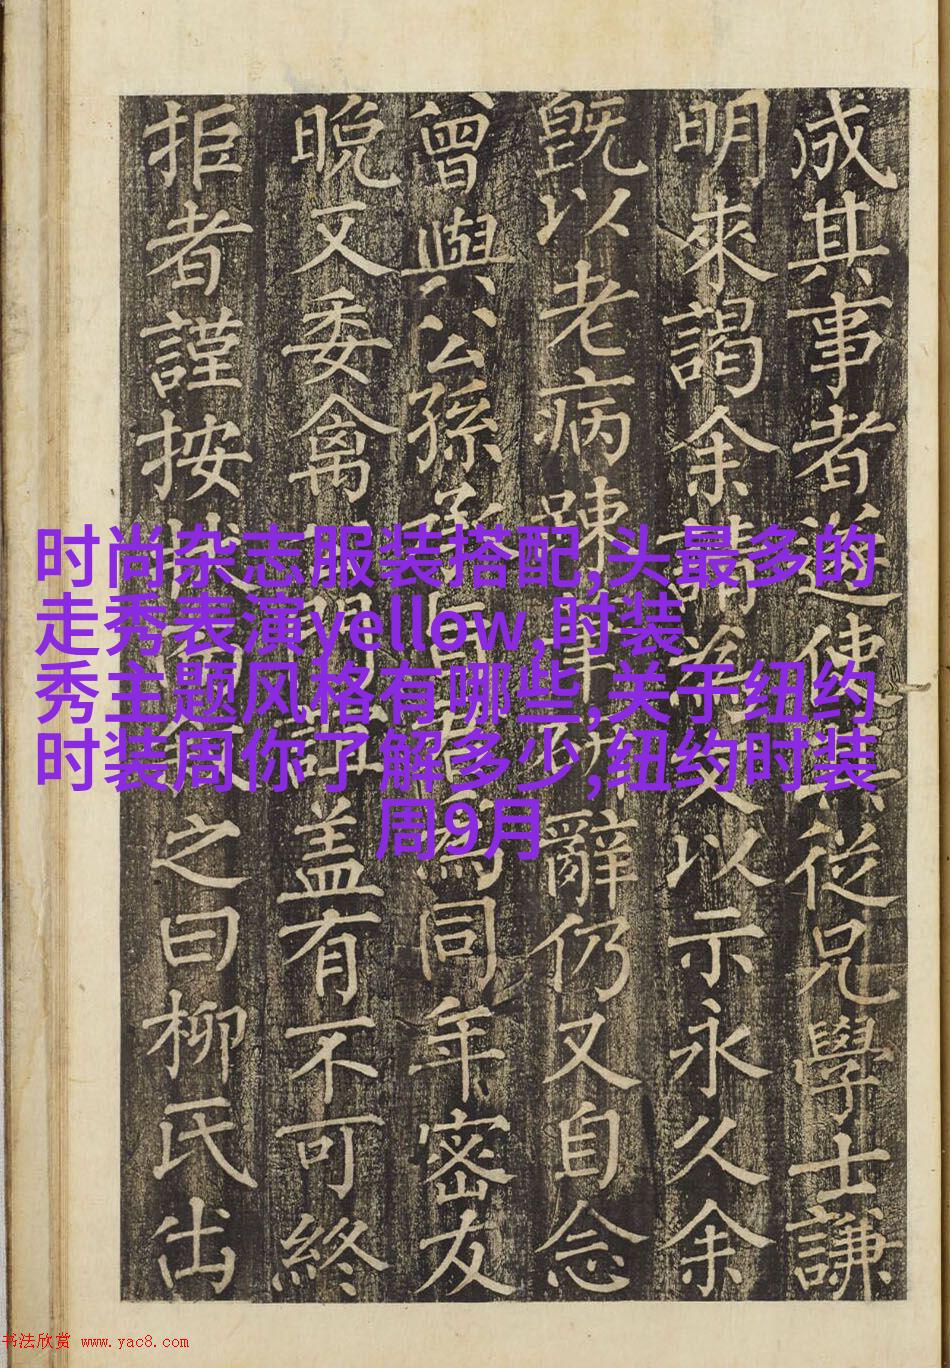 成其事者遂使其從兄學士謙
明來謁余請文以示永久余
既以老病踈辭仍又自念
曾與公孫承旨為同年密友
晚又委禽門誼盖有不可終
拒者謹按狀之曰柳氏出
时尚杂志服装搭配,头最多的
走秀表演yellow,时装
秀主题风格有哪些,关于纽约
时装周你了解多少,纽约时装
周9月
书法欣赏 www.yac8.com